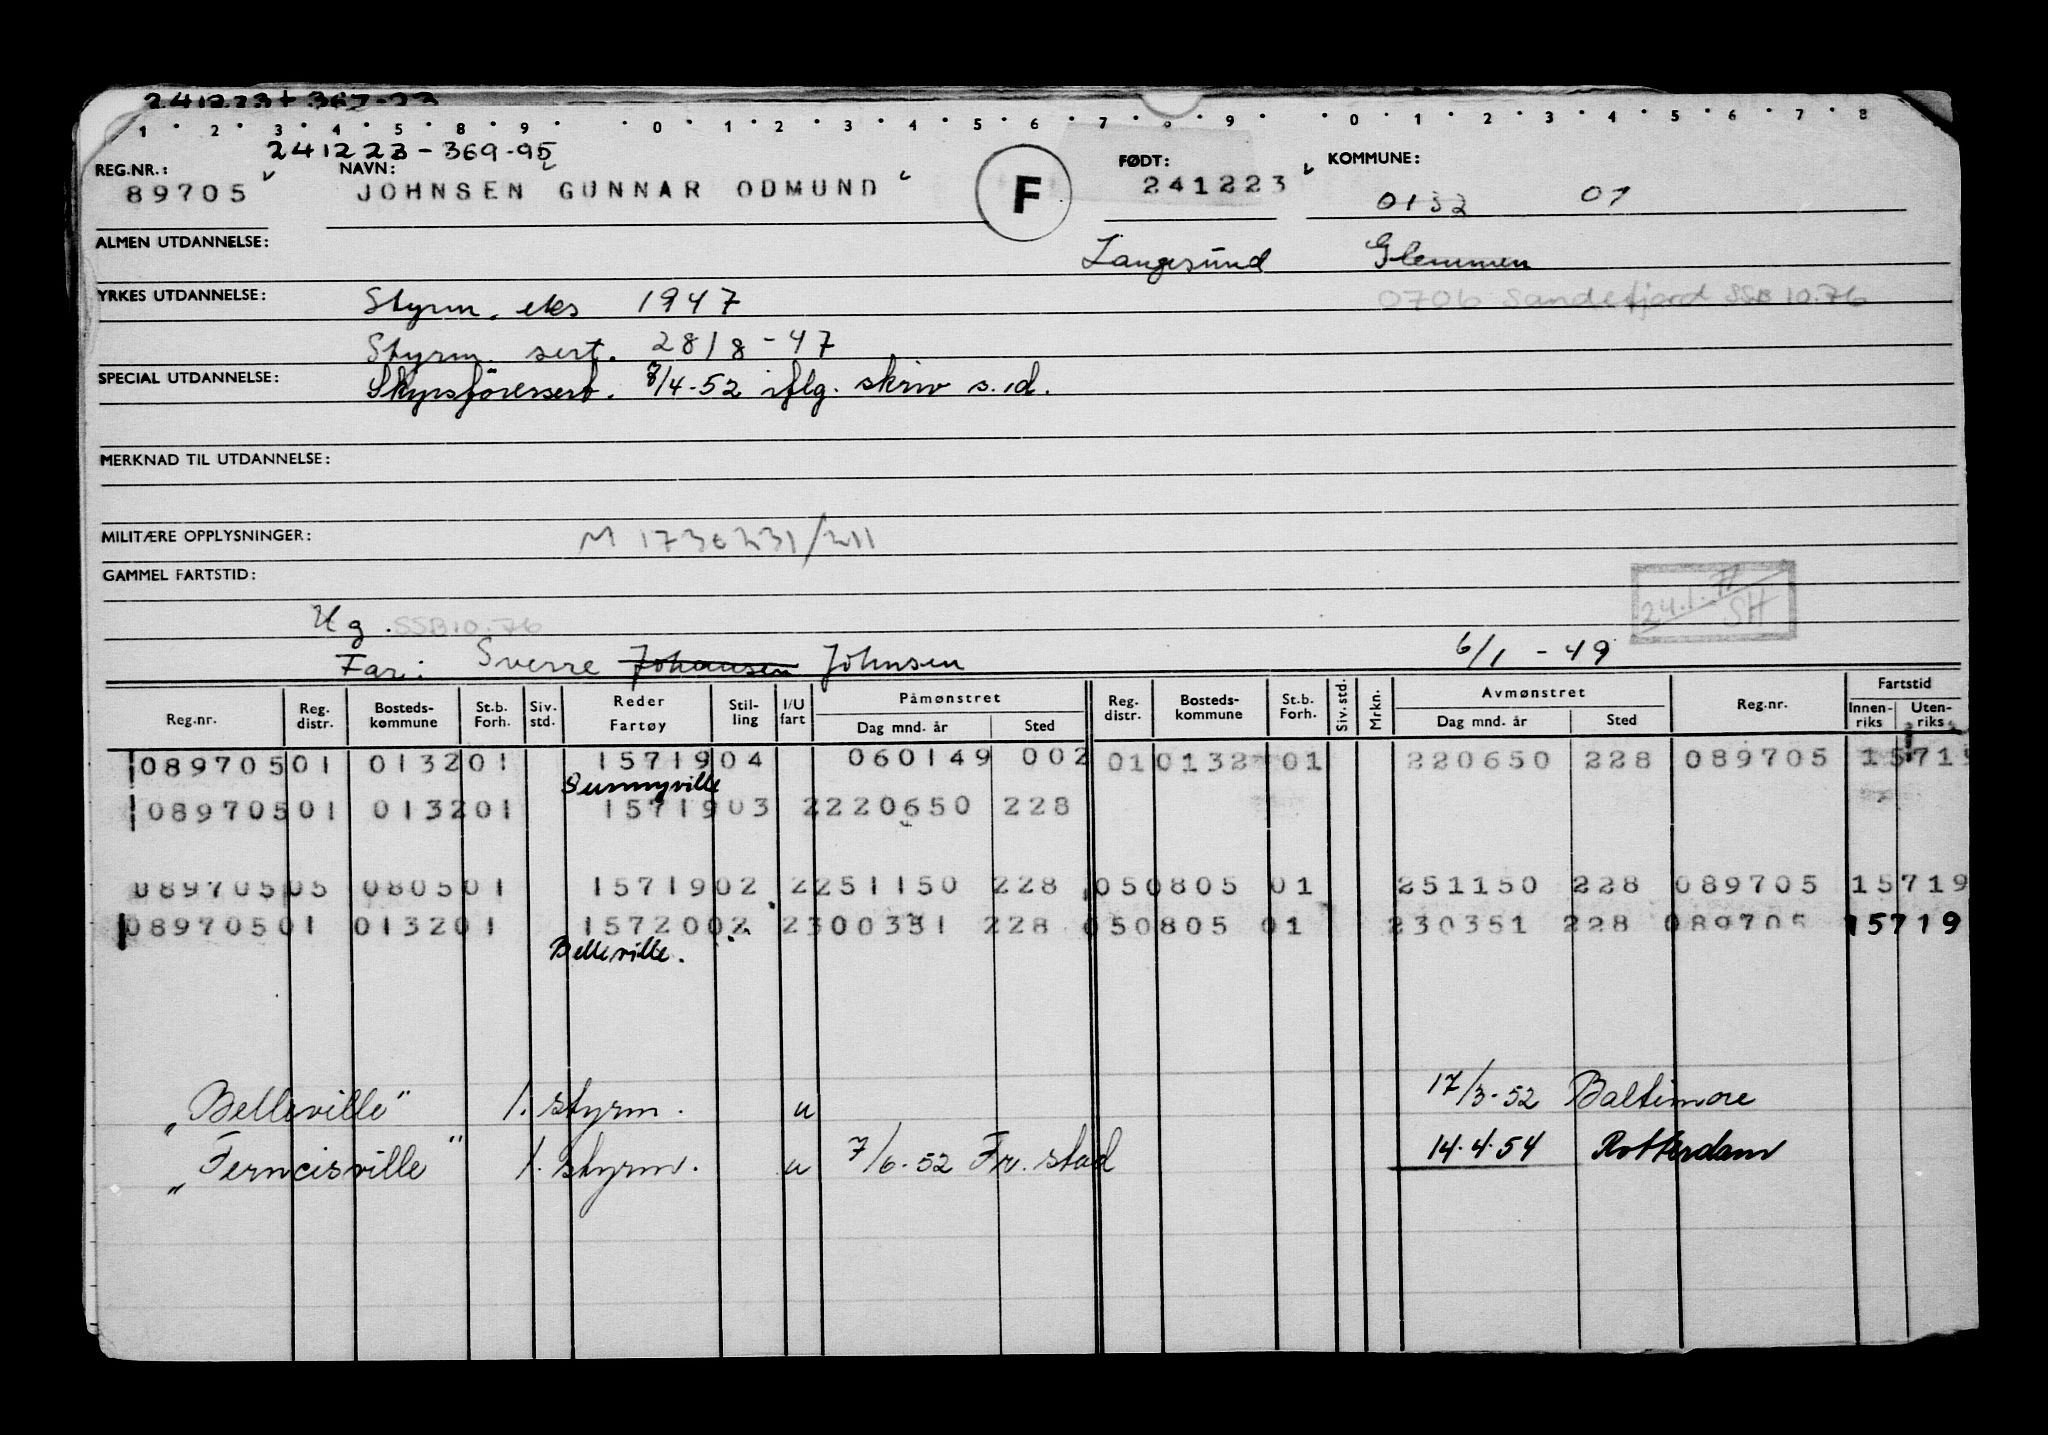 241223+367-23
1 2 3 4 5 8 9 0 1 2 3 4 5 6 7 8 9 0 1 2 3 4 5 6 7 8
241223-369-95
REG.NR.: NAVN: FØDT: KOMMUNE:
89705 JOHNSEN GUNNAR ODMUND F 241223 0132 07
ALMEN UTDANNELSE: Langesund Glemmen
YRKES UTDANNELSE: Styrm. eks 1947 0706 Sandefjord SSB 10.76
Styrm. sert. 28/8-47
SPECIAL UTDANNELSE: Skipsføressert. 7/4-52 iflg. skriv s.d.
MERKNAD TIL UTDANNELSE:
MILITÆRE OPPLYSNINGER: M 1736231/211
GAMMEL FARTSTID: 24.1.77 SH
Ug. SSB 10.76
Far: Sverre Johansen Johnsen 6/1-49
Reg.nr. Reg. distr. Bosteds-kommune St.b. Forh. Siv. std. Reder Fartøy Stil-ling I/U fart Påmønstret Dag mnd. år Sted Reg. distr. Bosteds-kommune St.b. Forh. Siv. std. Mrkn. Avmønstret Dag mnd. år Sted Reg.nr. Fartstid Innen-riks Uten-riks
089705 01 0132 01 15719 04 060149 002 01 0132 01 220650 228 089705 15719
Sunnyville
089705 01 0132 01 15719 03 2 220650 228
089705 05 0805 01 15719 02 2 251150 228 05 0805 01 251150 228 089705 15719
089705 01 0132 01 15720 02 2 300351 228 05 0805 01 230351 228 089705 15719
Belleville.
"Belleville" 1. styrm. u 17/3-52 Baltimore
"Ferncisville" 1. styrm. u 7/6-52 Fr.stad 14-4-54 Rotterdam